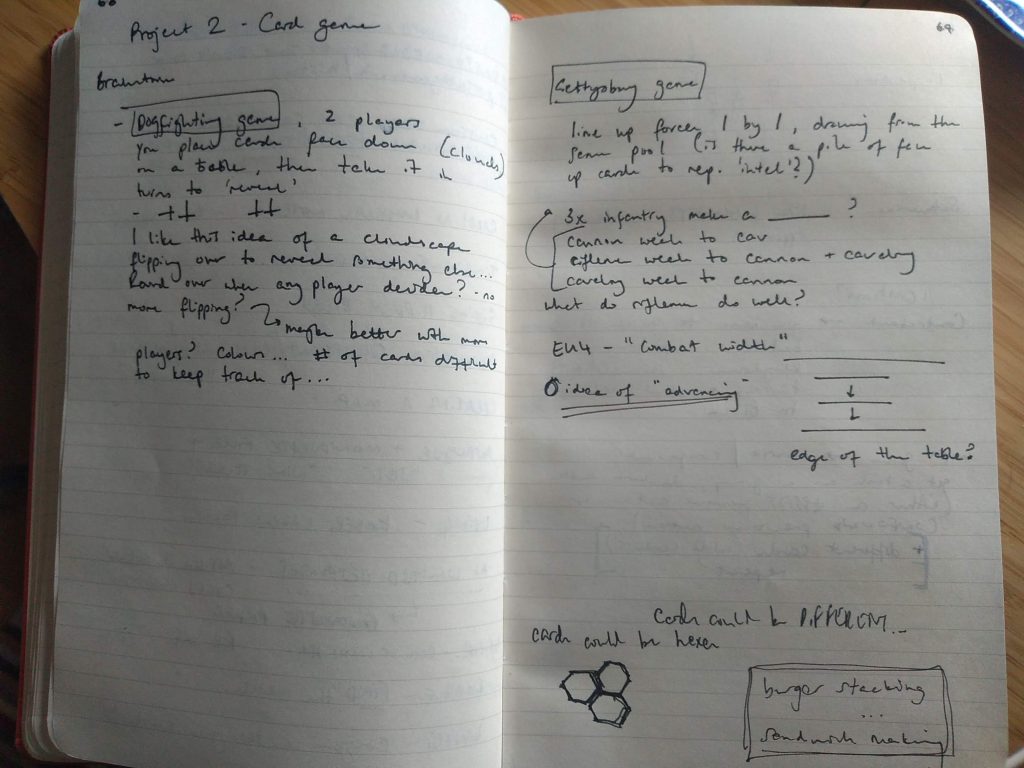 Project 2 - Card game
Brainstorm
- Dogfighting game, 2 players
you place cards face down (clouds)
on a table, then take it in
turns to 'reveal'
I like this idea of a cloudscape
flipping over to reveal something else...
Round over when any player decides? - no
more flipping?
maybe better with more
players? Colours... # of cards difficult
to keep track of...
69
Gettysburg game
line up forces 1 by 1, drawing from the
same pool (is there a pile of face
up cards to rep. 'intel'?)
3x infantry make a ______ ?
cannon weak to cav
riflemen weak to cannon + cavalry
cavalry weak to cannon
what do riflemen do well?
EU4 - "Combat width"
idea of "advancing"
edge of the table?
Cards could be DIFFERENT...
cards could be hexes
burger stacking
...
sandwich making